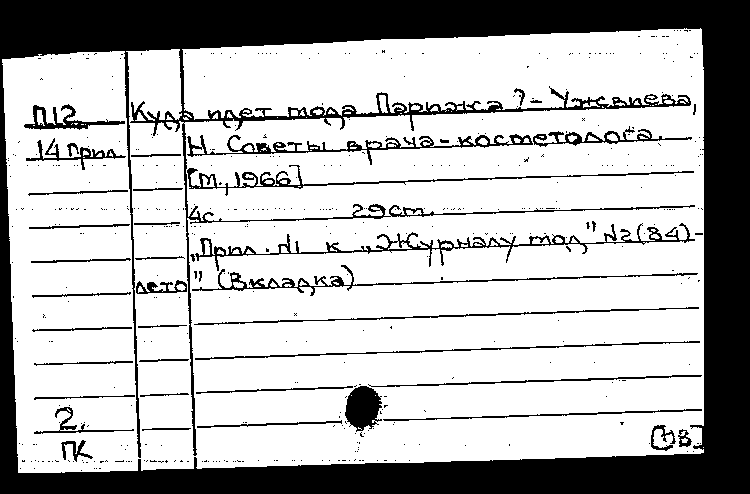 П12 Куда идет мода Парижа? - Ужвиева,
14 прил. Н. Советы врача-косметолога.
[М., 1966]
4с. 29 ст.
„Прил. №1 к „Журналу мод" №2(84) -
лето" (Вкладка)
2.
ПК